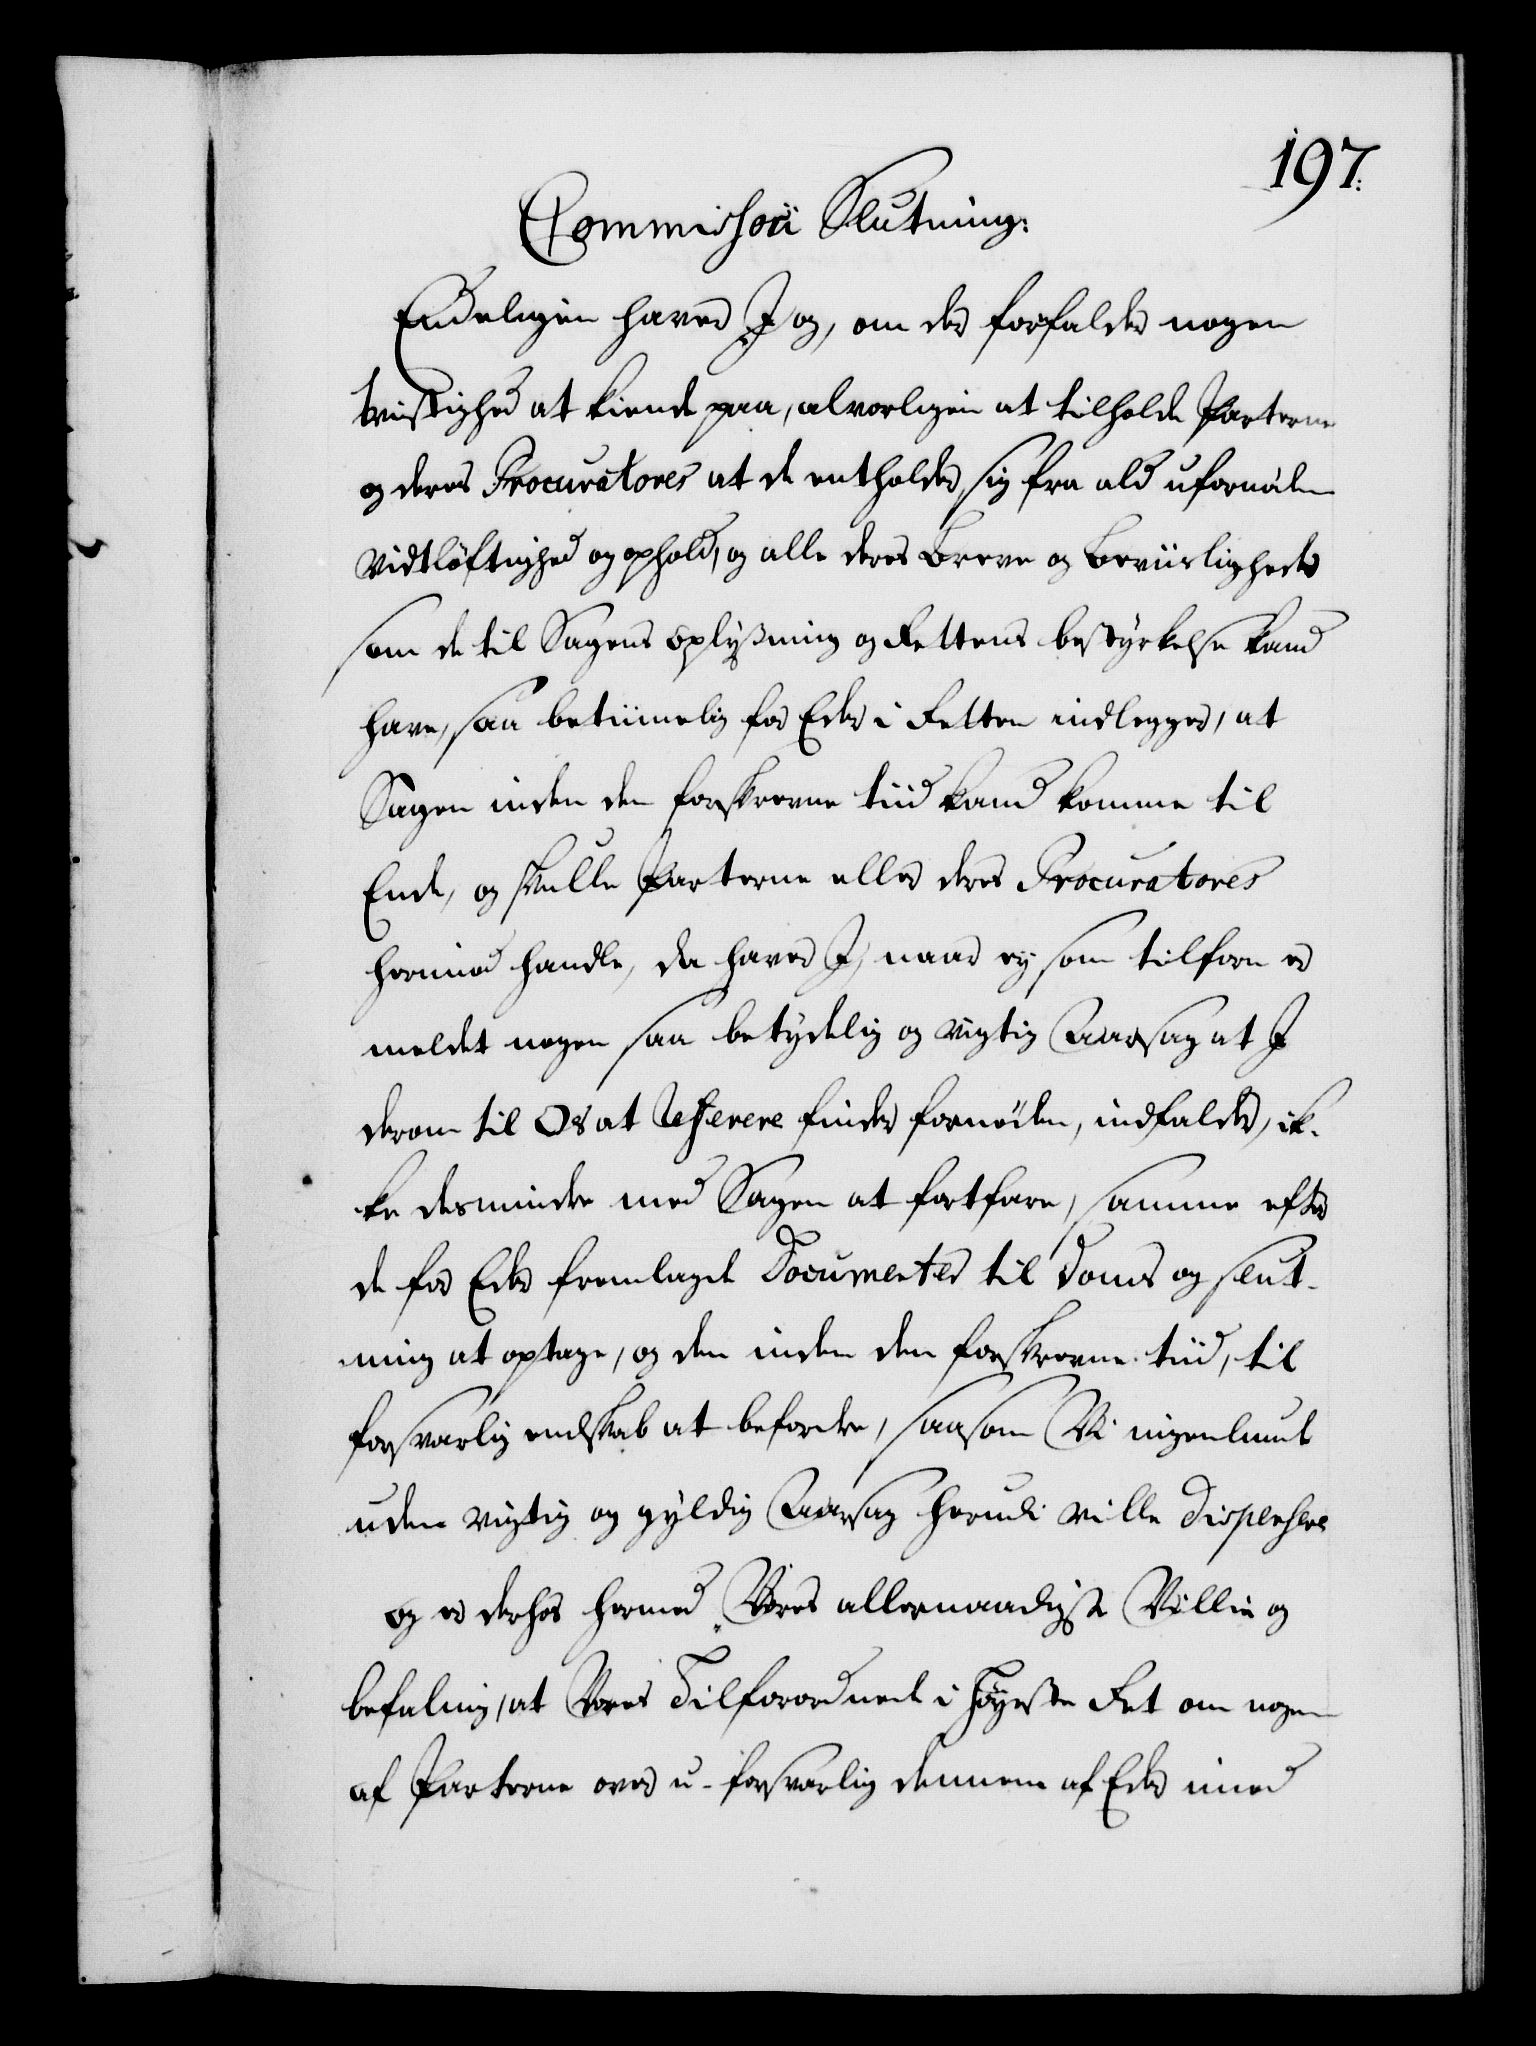 197.
Commissorii Slutning:
Endeligen haver I og, om der forfalder nogen
tvistighed at kiende paa, alvorligen at tilholde Parterne
og deres Procuratores at de entholder sig fra ald ufornøden
Vidtløftighed og ophold, og alle deres Breve og Beviisligheder
som de til Sagens oplysning og Rettens bestyrkelse kand
have, saa betiimelig for Eder i Retten indlegger, at
Sagen inden den forskrevne tiid kand komme til
Ende, og skulle Parterne eller deres Procuratores
herimod handle, da haver I, naar ey som tilforn er
meldet nogen saa betydelig og vigtig Aarsag at I
derom til Os at referere finder fornøden, indfalder, ik-
ke desmindre med Sagen at fortfare, samme efter
de for Eder fremlagde Documenter til Doms og slut-
ning at optage, og den inden den forskrevne tiid, til
forsvarlig endskab at befordre, saasom Vi ingenlunde
uden vigtig og gyldig Aarsag herudi ville dispensere
og er derhos hermed Vores allernaadigste Villie og
befaling, at Vores Tilforordnede i Høyeste Ret om nogen
af Parterne over u-forsvarlig dennem af Eder imod